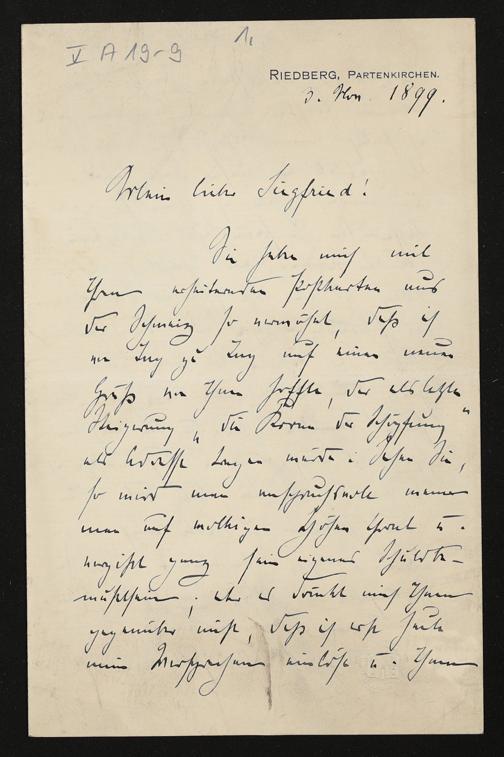 V A 19-9
1,
RIEDBERG, PARTENKIRCHEN.
3. Nov. 1899.
Mein lieber Siegfried!
Sie haben mich mit
Ihren erheiternden Postkarten aus
der Schweiz so verwöhnt, daß ich
von Tag zu Tag auf einen neuen
Gruß von Ihnen hoffte, der als letzte
Steigerung „die Krone der Schöpfung"
als Adresse tragen würde; sehen Sie,
so wird man anspruchsvoll wenn
man auf wolkigen Höhen thront u.
vergißt ganz sein eigenes Schuldbe-
wußtsein; aber es drückt mich Ihnen
gegenüber nicht, daß ich erst heute
mein Versprechen einlöse u. Ihnen